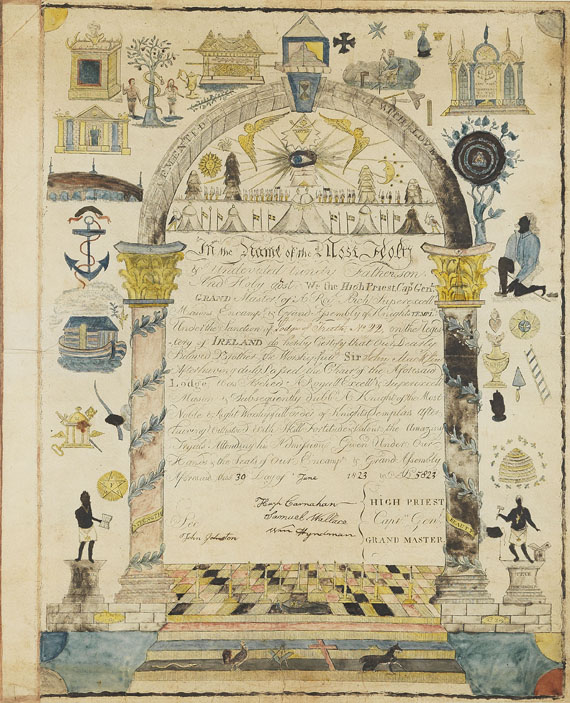 CEMENTED WITH LOVE
In the Name of the Most Holy
& Undivided Trinity Father Son
And Holy Gost We the High Priest Cap Gen
GRAND Master of A Royal Arch Superexcell
Masons Encampt & Grand Assembly of Knights TEMP
Under the Sanction of Lodge of Truth No 22, on the Regis
try of IRELAND do hereby Certify that Our Dearly
Beloved Brother the Worshipfull Sir John
After having duly Passed the Chair of the Aforesaid
Lodge, Was Arched A Royall Excellt & Superexcelt
Mason & Subsequently Dubbd A Knight of the Most
Noble & Right Worshipfull Order of Knights Templars After
having With Skill Fortitude & Valour the Amazing
Tryals Attending his Admission Given Under Our
Hands & the Seals of Our Encampt & Grand Assembly
Aforesaid this 30 Day of June 1823 & 5823
Hugh Carnahan HIGH PRIEST
Samuel Wallace Captn Genl
Wm Hyndman GRAND MASTER
John Johnston
STRENGTH
BEAUTY